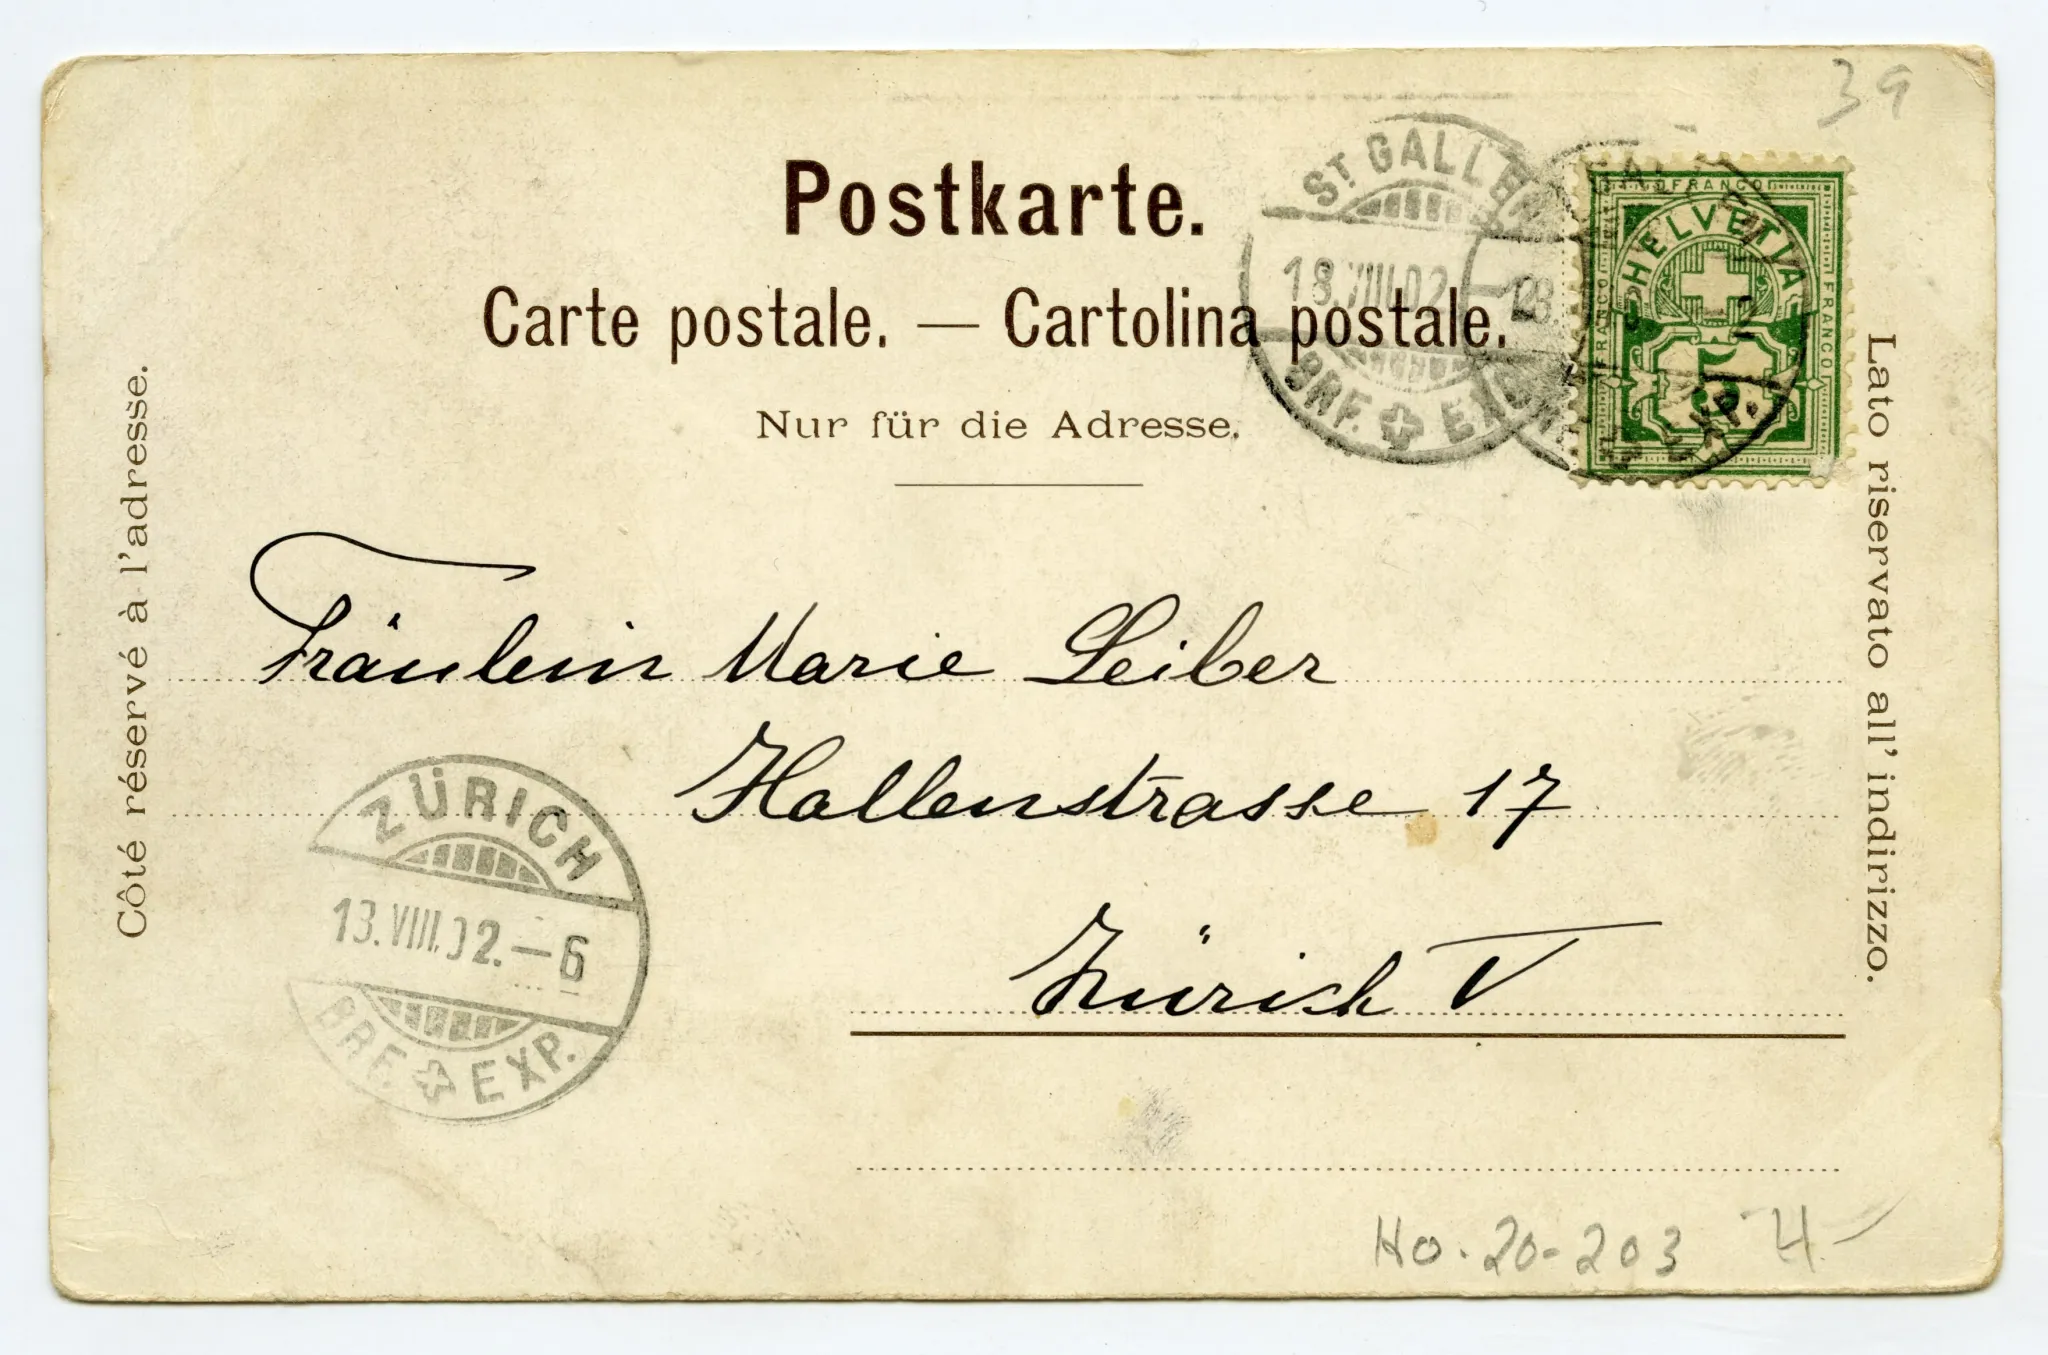 39
Postkarte.
Carte postale. — Cartolina postale.
Nur für die Adresse.
ST GALLEN
18.VIII.02
BRF. EXP.
FRANCO
HELVETIA
FRANCO
FRANCO
5
EXP.
Côté réservé à l'adresse.
Lato riservato all' indirizzo.
Fräulein Marie Leiber
Hallenstrasse 17
Zürich V
ZÜRICH
13.VIII.02.–6
BRF. EXP.
Ho. 20-203 H.